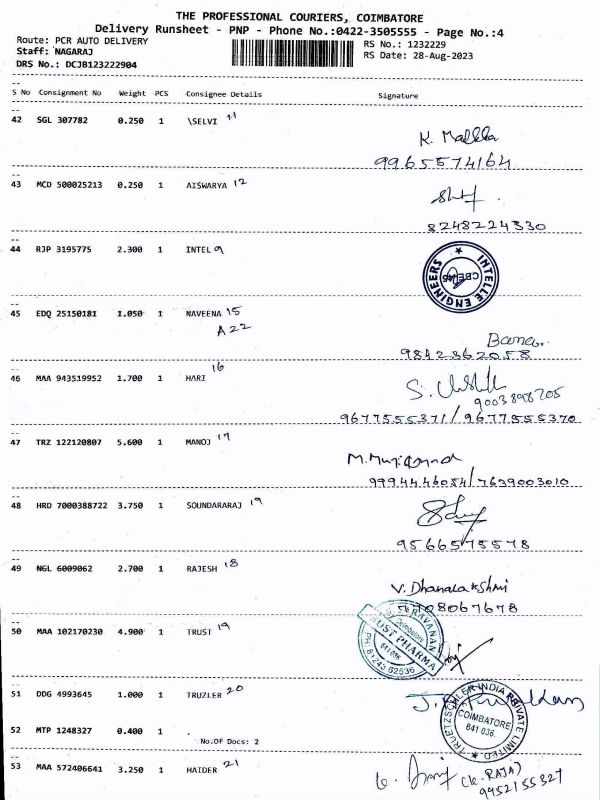 THE PROFESSIONAL COURIERS, COIMBATORE
Delivery Runsheet - PNP - Phone No.:0422-3505555 - Page No.:4
Route: PCR AUTO DELIVERY
RS No.: 1232229
Staff: NAGARAJ
RS Date: 28-Aug-2023
DRS No.: DCJB123222904
S No Consignment No Weight PCS Consignee Details Signature
42 SGL 307782 0.250 1 \SELVI 11
K. Mallika
9965574164
43 MCD 500025213 0.250 1 AISWARYA 12
8248224330
44 RJP 3195775 2.300 1 INTEL 9
INTELLE ENGINEERS
CBE-45
45 EDQ 25150181 1.050 1 NAVEENA 15
A22
9842362058
46 MAA 943519952 1.700 1 HARI 16
9003898705
9677555371/9677555370
47 TRZ 122120807 5.600 1 MANOJ 17
9994446054/7639003010
48 HRD 7000388722 3.750 1 SOUNDARARAJ 19
9566575578
49 NGL 6009062 2.700 1 RAJESH 18
V. Dhanalakshmi
8067678
50 MAA 102170230 4.900 1 TRUST 19
TRUST PHARMA
51 DDG 4993645 1.000 1 TRUZLER 20
INDIA PRIVATE LIMITED
COIMBATORE
641 036.
52 MTP 1248327 0.400 1
No.Of Docs: 2
53 MAA 572406641 3.250 1 HAIDER 21
(K. RAJA)
9952155327